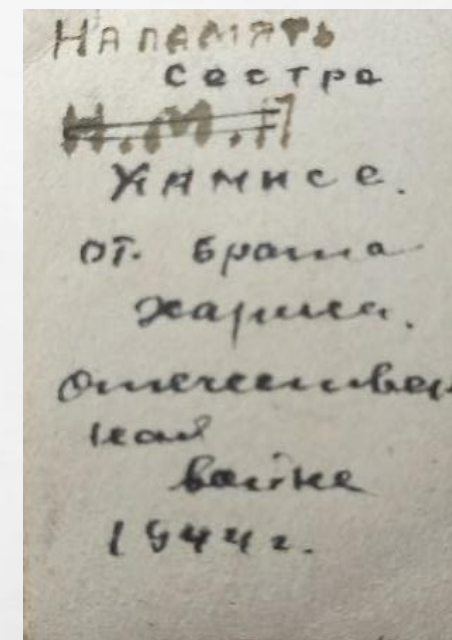 На память
сестре
Н.М.П
Хамисе.
от. брата
Хариса.
отечествен
ная
войне
1944 г.